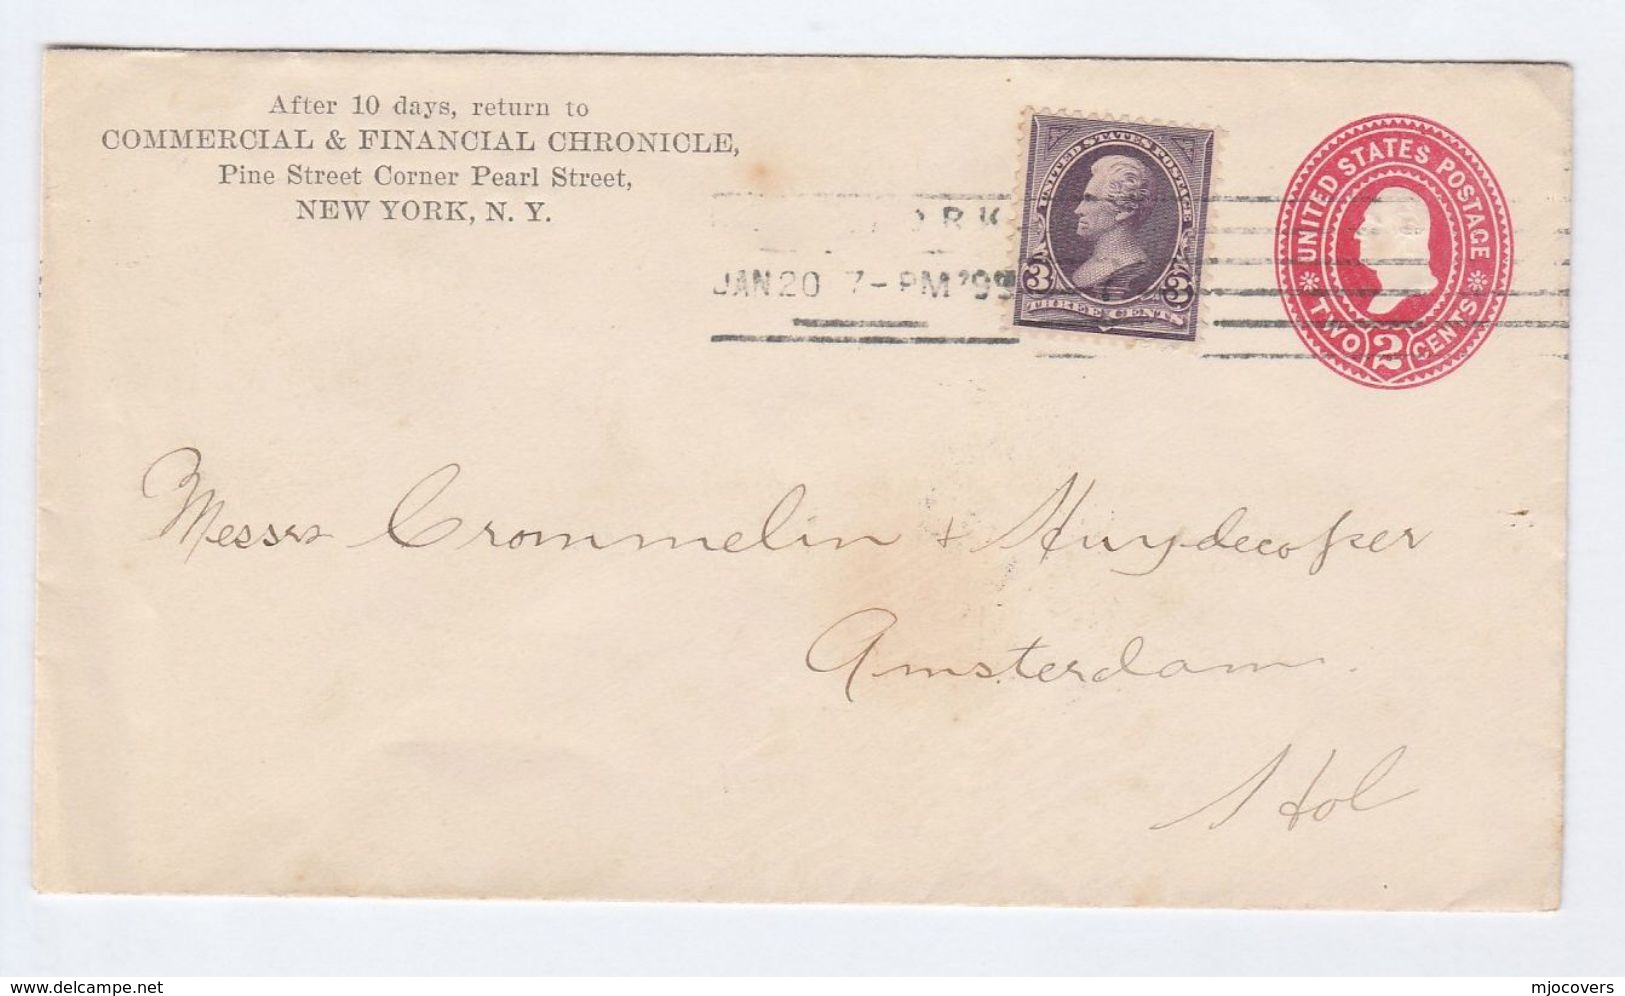 After 10 days, return to
COMMERCIAL & FINANCIAL CHRONICLE,
Pine Street Corner Pearl Street,
NEW YORK, N. Y.
UNITED STATES POSTAGE
3 3
THREE CENTS
UNITED STATES POSTAGE
TWO 2 CENTS
ORK
JAN 20 7-PM '99
Messrs Crommelin + Huydecoper
Amsterdam.
Hol
delcampe.net
mjocovers